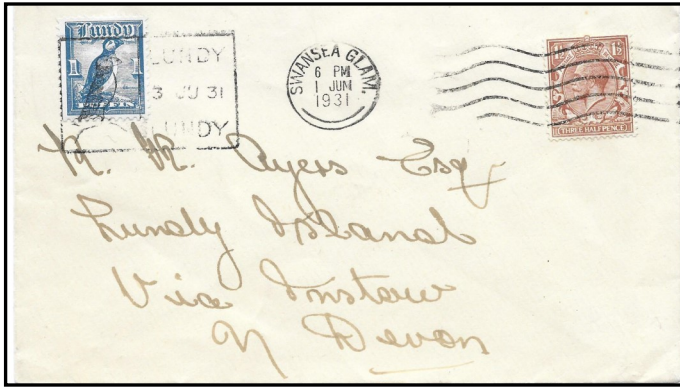 Lundy
1 1
PUFFIN
LUNDY
3 JU 31
LUNDY
SWANSEA GLAM.
6 PM
1 JUN
1931
1½ 1½
THREE HALFPENCE
M. M. Ayers Esq
Lundy Island
Via Instow
N Devon